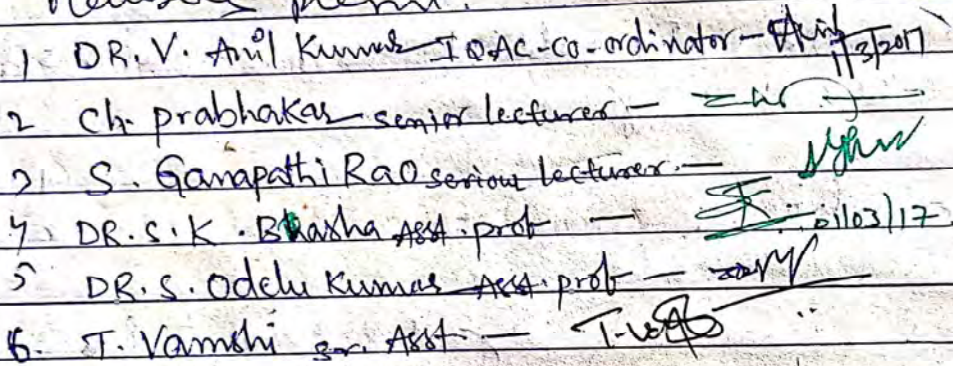 Members present:
1 DR. V. Anil Kumar IQAC-Co-ordinator - 1/3/2017
2 Ch. prabhakar senior lecturer -
3 S. Ganapathi Rao seriour lecturer. -
4 DR. S. K. Bhasha Asst. prof - 01/03/17
5 DR. S. Odelu Kumar Asst. prof -
6. T. Vamshi sr. Asst -